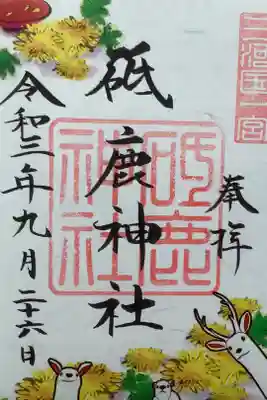 三河國一宮
奉拝
砥鹿神社
砥鹿神社
令和三年九月二十六日